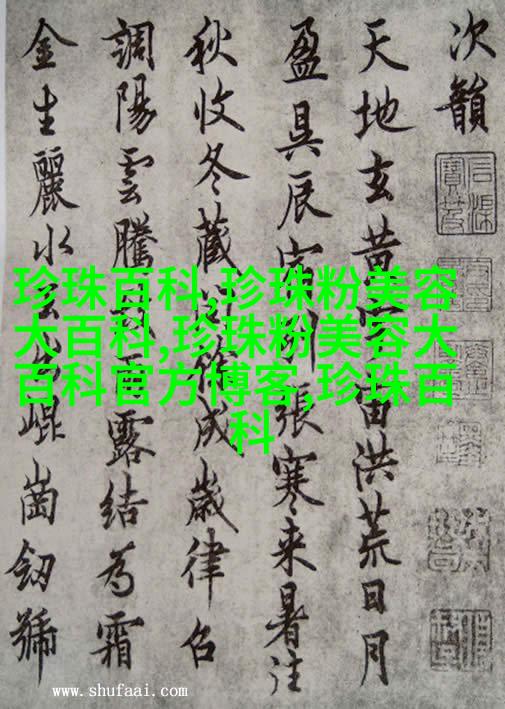 次韻
天地玄黃宇宙洪荒日月
盈昃辰宿列張寒来暑往
秋收冬藏閏餘成歲律召
調陽雲騰致雨露結為霜
金生麗水玉出崐崗劒號
珍珠百科,珍珠粉美容
大百科,珍珠粉美容大
百科官方博客,珍珠百
科
www.shufaai.com